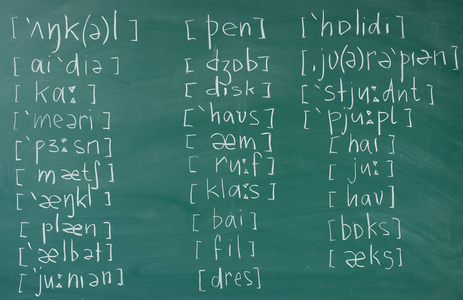 [ˋʌŋk(ə)l]
[aiˋdiə]
[kaː]
[ˋmeəri]
[ˋpɜːsn]
[mætʃ]
[ˋæŋkl]
[plæn]
[ˋælbət]
[ˋjuːniən]
[pen]
[dʒɒb]
[disk]
[ˋhaʊs]
[æm]
[ruːf]
[klaːs]
[bai]
[fil]
[dres]
[ˋhɒlidi]
[ˌjʊ(ə)rəˋpɪən]
[ˋstjuːdnt]
[ˋpjuːpl]
[hai]
[juː]
[haʊ]
[bɒks]
[æks]